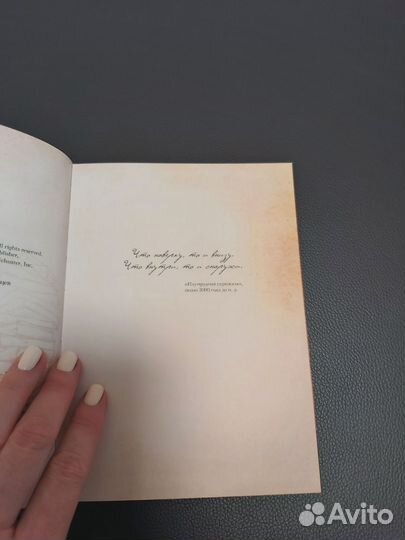 ll rights reserved.
Schuster, Inc.
Что наверху, то и внизу.
Что внутри, то и снаружи.
«Изумрудная скрижаль»,
около 3000 года до н. э.
Avito